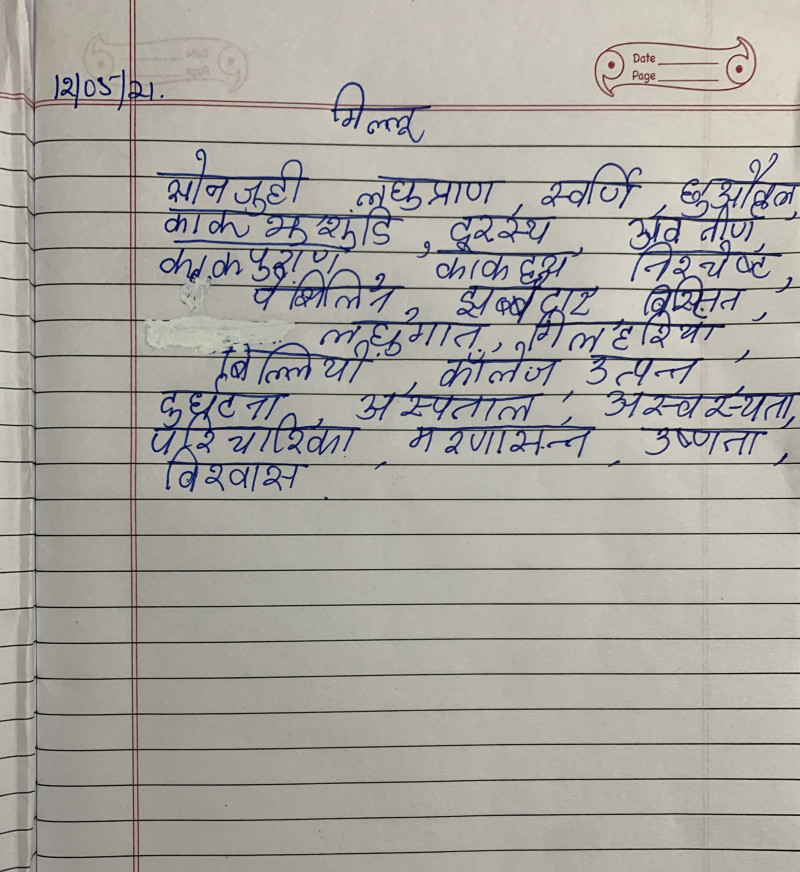 Date
Page
12/05/21.
गिल्लू
सोनजुही लघुप्राण, स्वर्णि, छुओवैल,
काकभुशुंडि, दूरस्थ, अवतीर्ण,
काकपुराण काकद्वय निश्चेष्ट,
पेंसिलिन, झब्बेदार विस्मित,
लघुगात, गिलहरियाँ,
बिल्लियाँ, कॉलेज, उत्पन्न,
दुर्घटना, अस्पताल, अस्वस्थता,
परिचारिका, मरणासन्न, उष्णता,
विश्वास